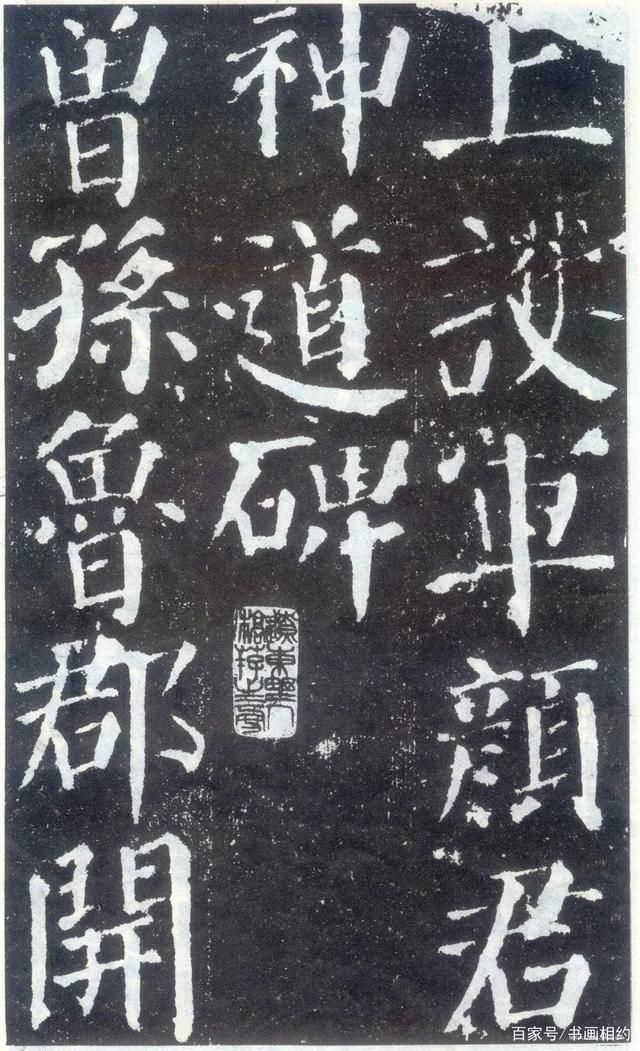 上護軍顏君
神道碑
曾孫魯郡開
百家号/书画相约